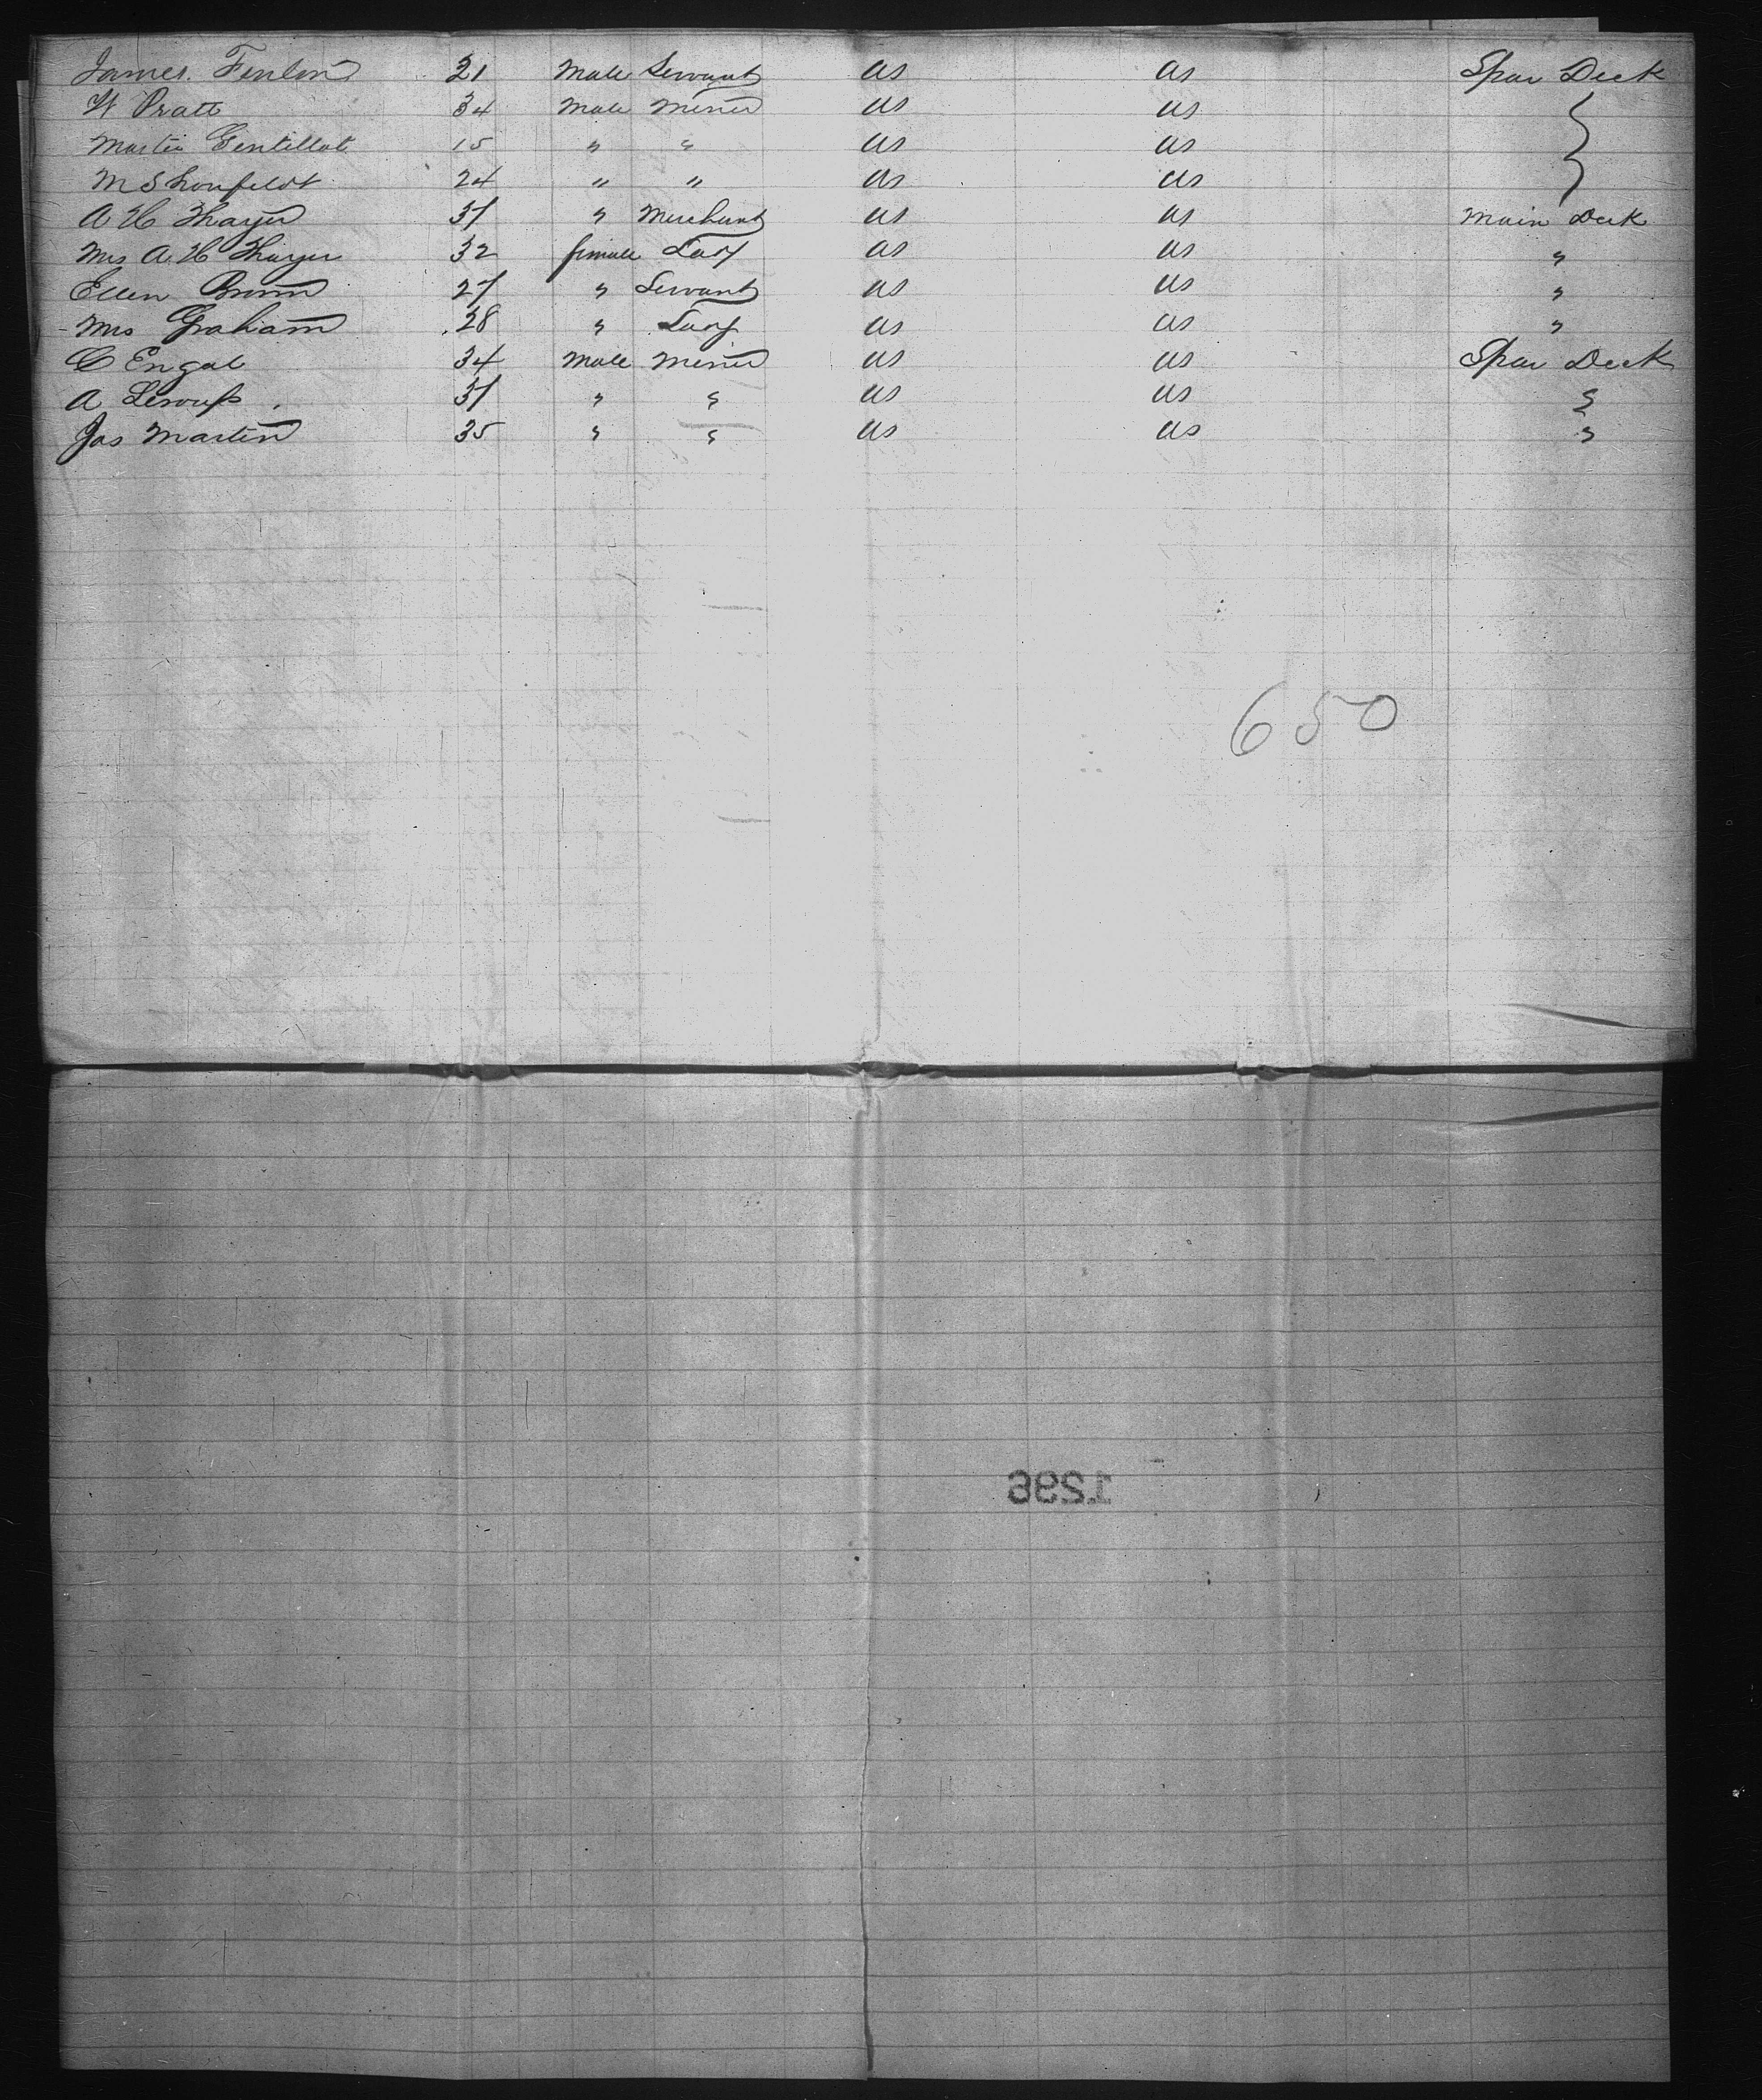 James Fenlon 21 Male Servant US US Spar Deck
W Pratt 34 Male Miner US US }
Martin Gentillot 15 " " US US
M Shonfeldt 24 " " US US
A H Thayer 37 " Merchant US US Main Deck
Mrs A. H Thayer 32 female Lady US US "
Ellen Brown 27 " Servant US US "
Mrs Graham 28 " Lady US US "
C Engal 34 Male Miner US US Spar Deck
A 37 " " US US "
Jas Martin 35 " " US US "
650
1296